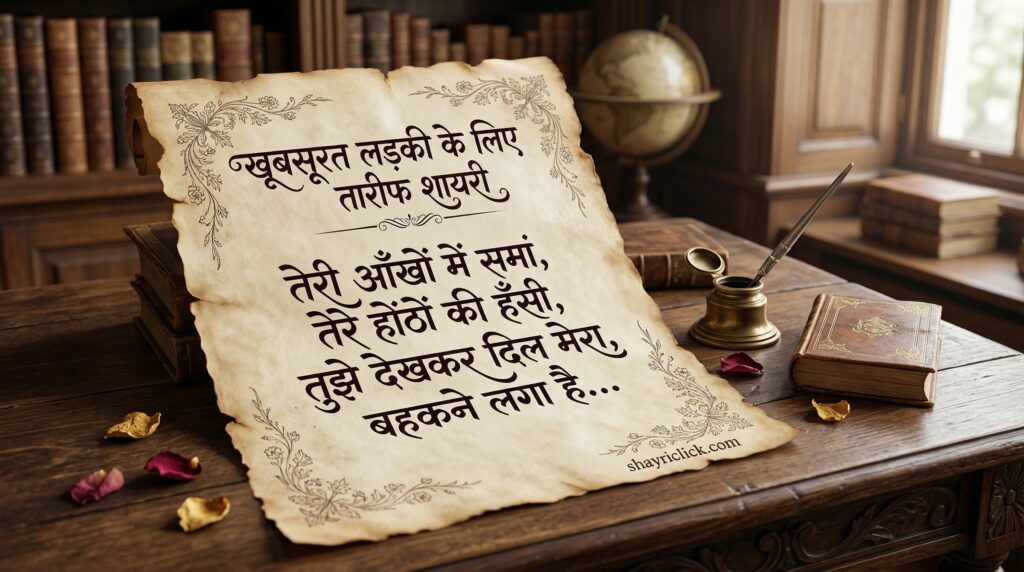 खूबसूरत लड़की के लिए
तारीफ शायरी
तेरी आँखों में समां,
तेरे होंठों की हँसी,
तुझे देखकर दिल मेरा,
बहकने लगा है...
shayriclick.com